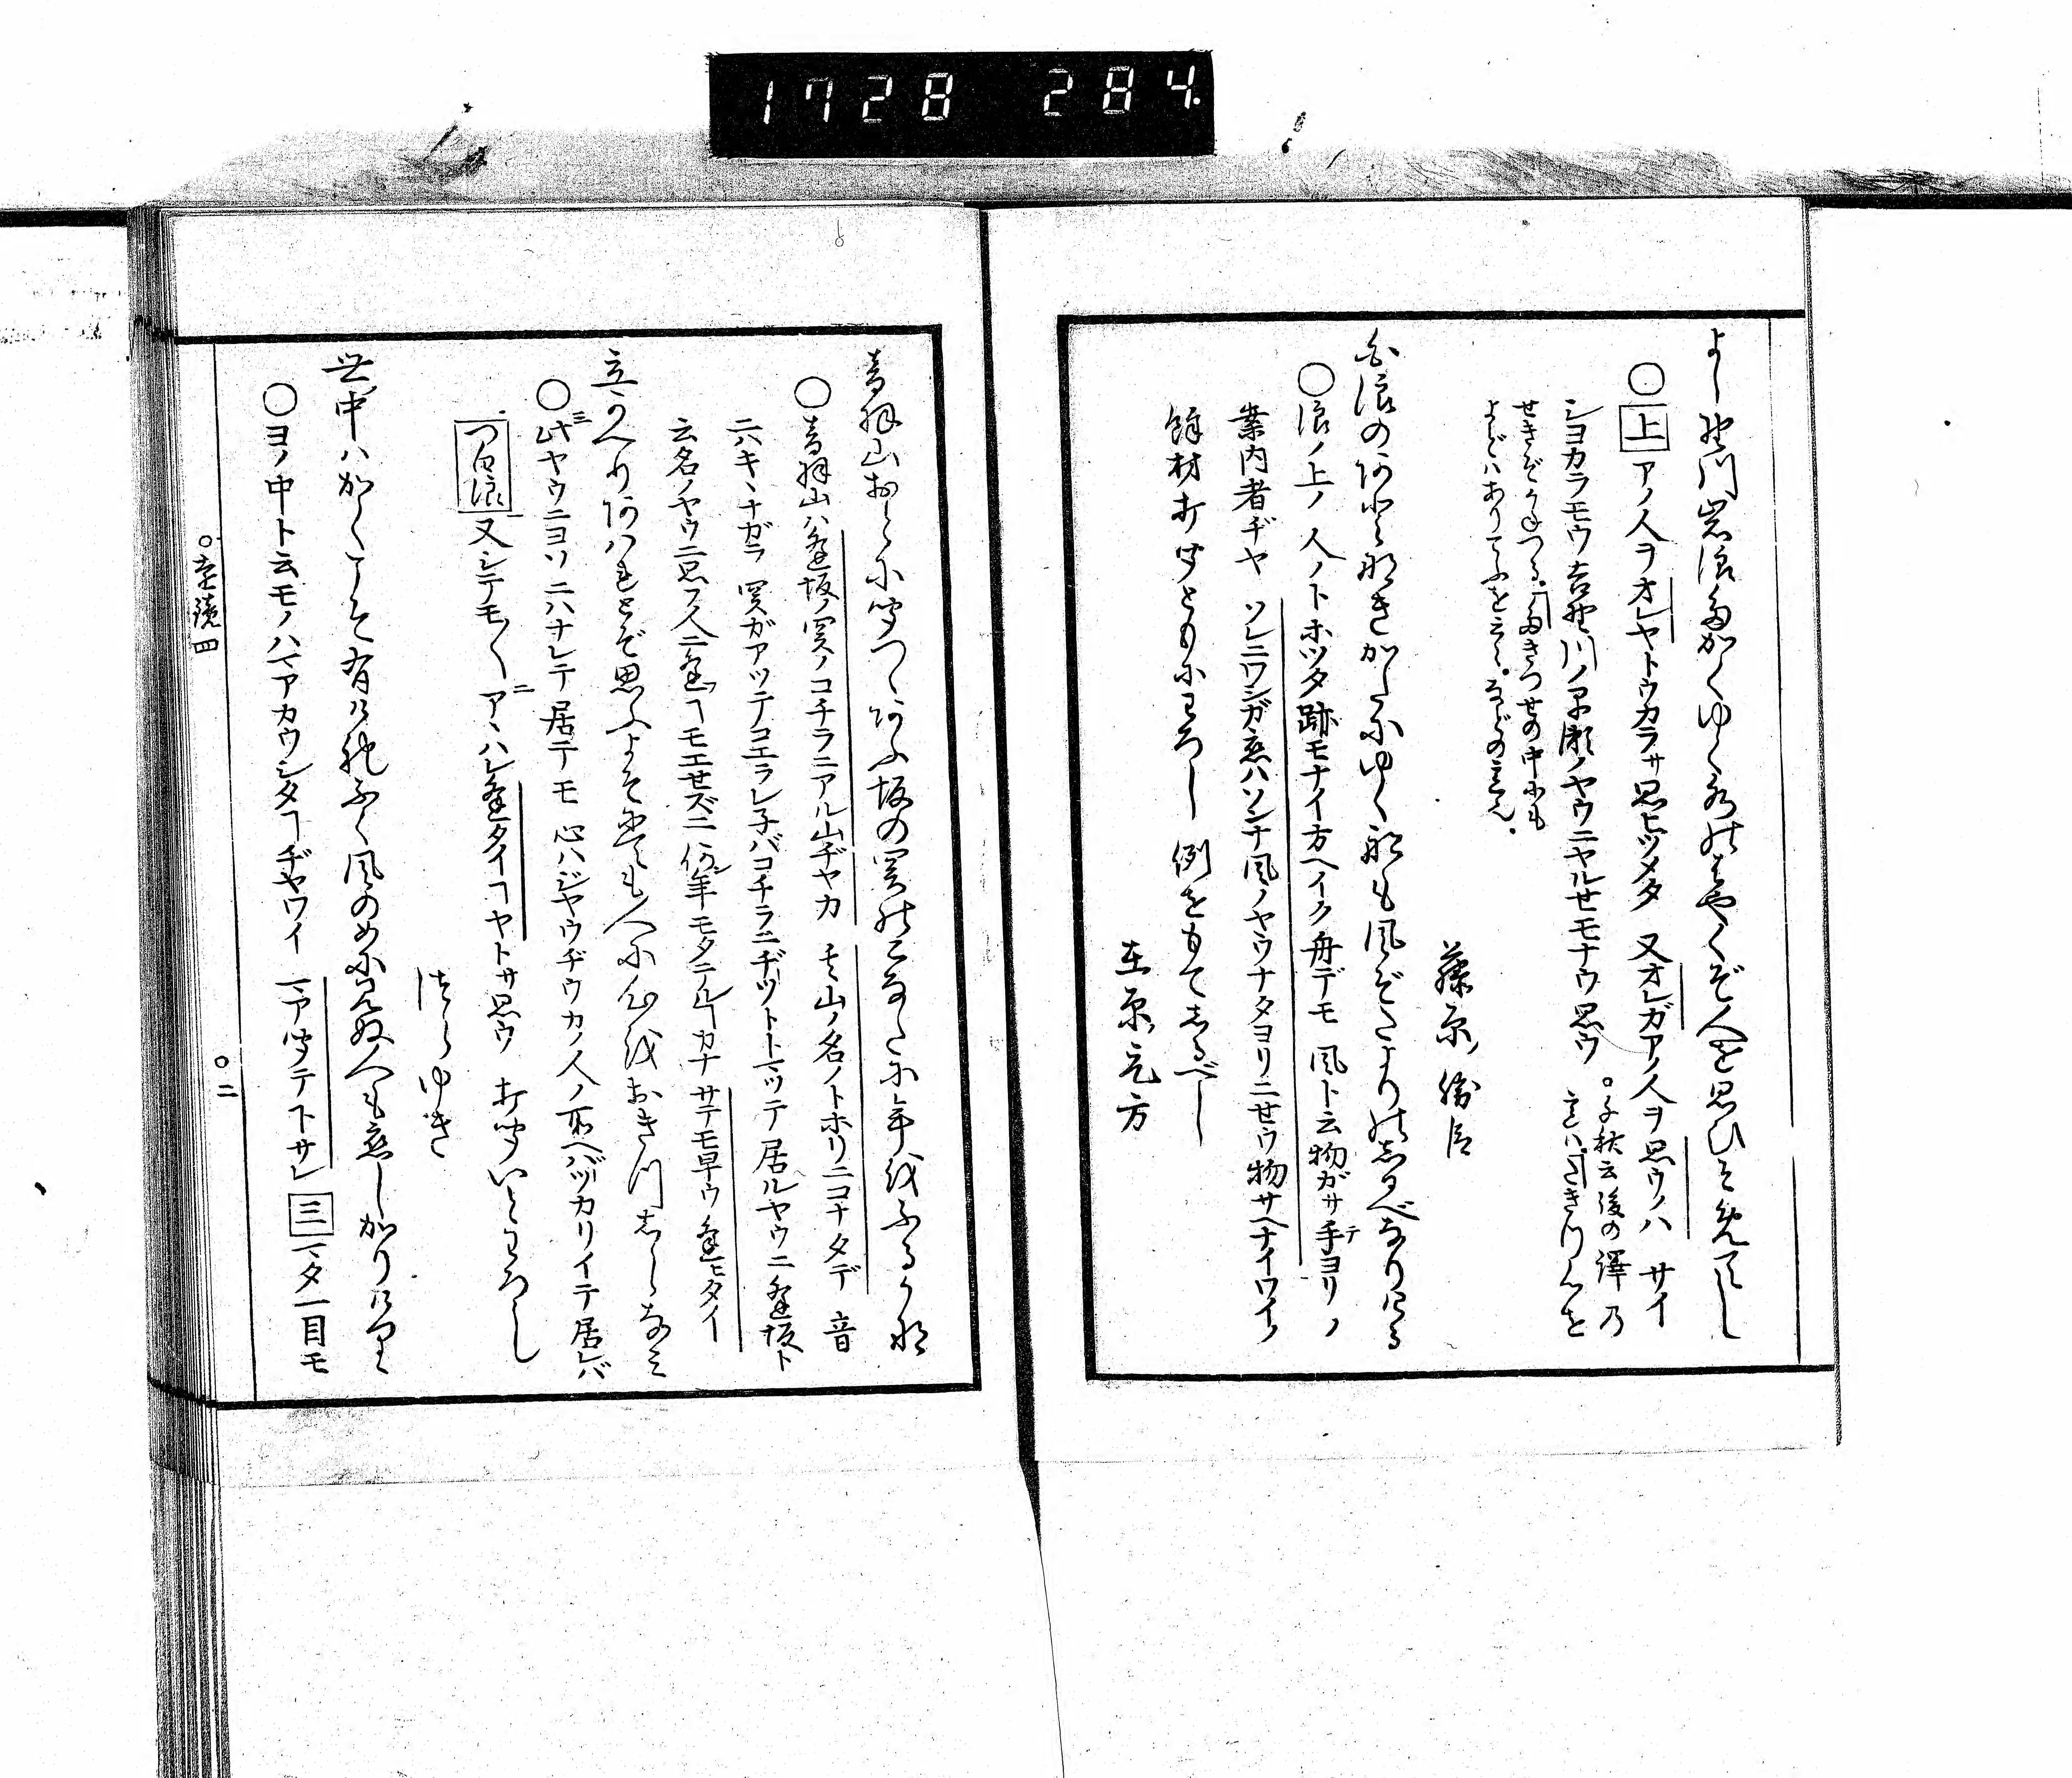 1728 284
よし野川岩浪高くゆく水のはやくぞ人を思ひそめてし
○上アノ人ヲオレヤトウカラサ思ヒツメタ 又オレガアノ人ヲ思ウノハ サイ
シヨカラモウ吉野川ノ早瀬ノヤウニヤルセモナウ思ウ
○千秋云後の譯乃
意は、たぎりて人を
せきぞかねつる。たぎつせの中にも
よどはありてふを云々。などの意ん。
藤原勝臣
白浪のあとなきかたにゆく舩も風ぞたよりのしるべなりける
○浪ノ上ノ 人ノトホツタ跡モナイ方ヘイク舟デモ 風ト云物ガサ手ヨリノ
案内者ヂヤ ソレニワシガ恋ハソンナ風ノヤウナタヨリニせウ物サヘナイワイノ
餘材打聞ともにわろし 例をもてしるべし
在原元方
音羽山おとに聞つゝあふ坂の関のこなたに年をふるかな
○音羽山ハ逢坂ノ関ノコチラニアル山ヂヤガ 其山ノ名ノトホリニコナタデ 音
ニハキヽナガラ 関ガアツテコエラレ子バコチラニヂツトマツテ居ルヤウニ 逢坂ト
云名ノヤウニ思フ人ニ逢フヿモエせズニ 何年モタテルヿカナ サテモ早ウ逢ヒタイ
立かへりあはれとぞ思ふよそにても人に心をおきつしらなみ
○此ヤウニヨソニハナレテ居テモ 心ハジヤウヂウカノ人ノ所ヘバツカリイテ居レバ
つ白浪又シテモ〳〵 アヽハレ逢タイヿヤトサ思ウ 打聞いとわろし
つらゆき
世中はかくこそ有けれ吹風のめに見ぬ人も恋しかりけり
○ヨノ中ト云モノハマアカウシタヿヂヤワイ マア聞テトサレ 三マダ一目モ
○遠鏡四
○二